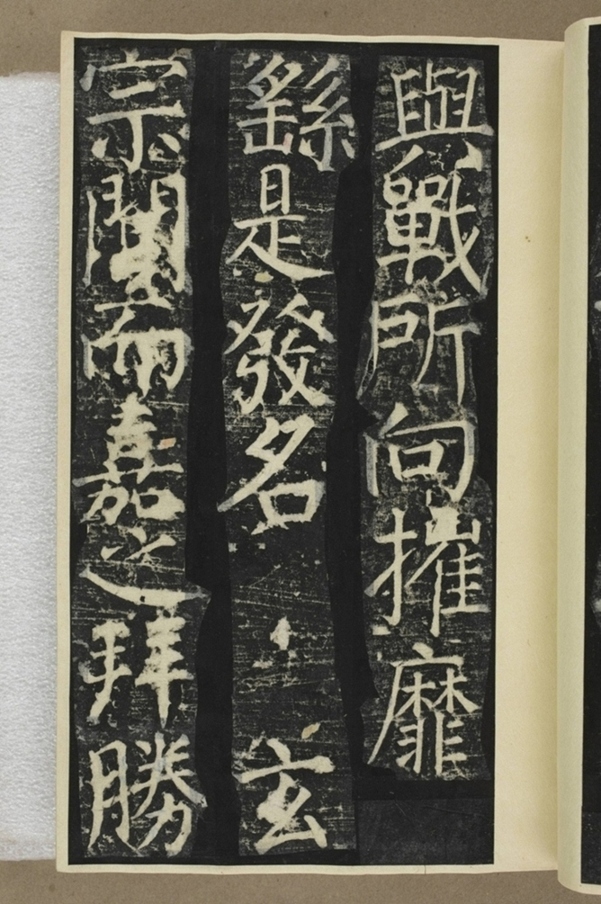 與戰所向摧靡
繇是發名 玄
宗聞而嘉之拜勝